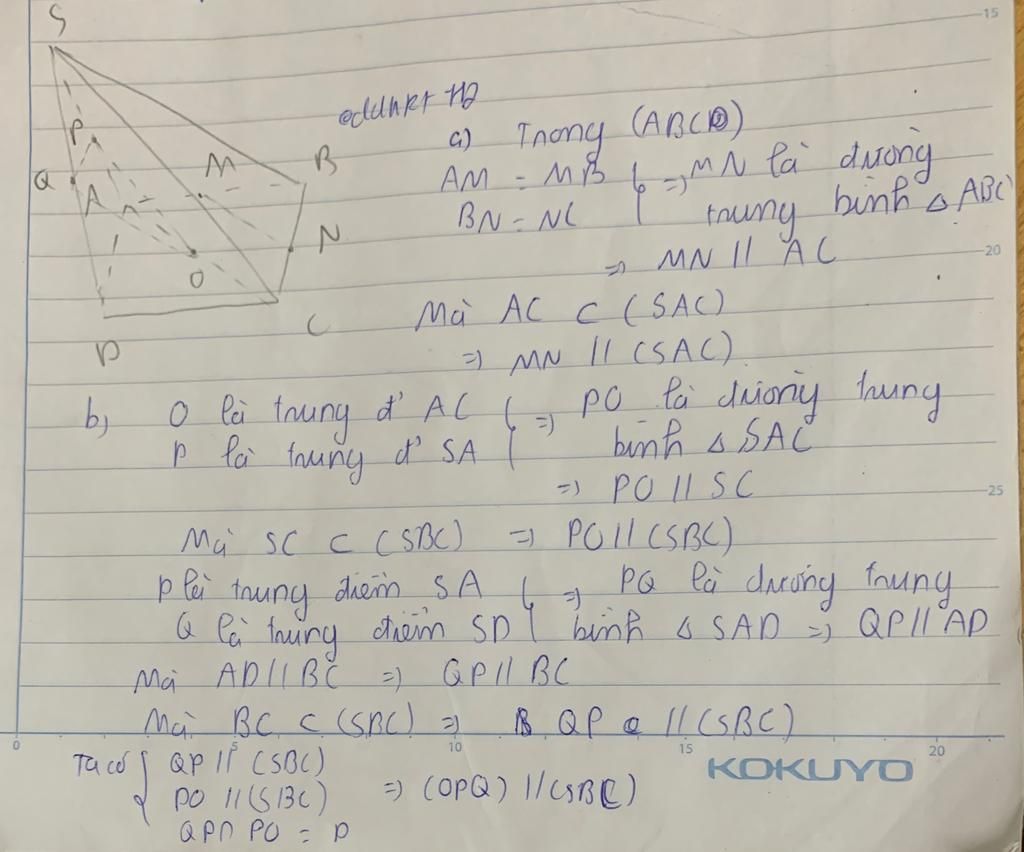 S
P
Q
A
M
B
N
O
D
C
15
a) Trong (ABCD)
AM = MB } => MN là đường
BN = NC } trung bình △ ABC
=> MN // AC
20
Mà AC ⊂ (SAC)
=> MN // (SAC)
b, O là trung đ' AC } => PO là đường trung
P là trung đ' SA } bình △ SAC
=> PO // SC
25
Mà SC ⊂ (SBC) => PO // (SBC)
P là trung điểm SA } => PQ là đường trung
Q là trung điểm SD } bình △ SAD => QP // AD
Mà AD // BC => QP // BC
Mà BC ⊂ (SBC) => QP // (SBC)
0 5 10 15 20
KOKUYO
Ta có { QP // (SBC)
PO // (SBC) => (OPQ) // (SBC)
QP ∩ PO = P